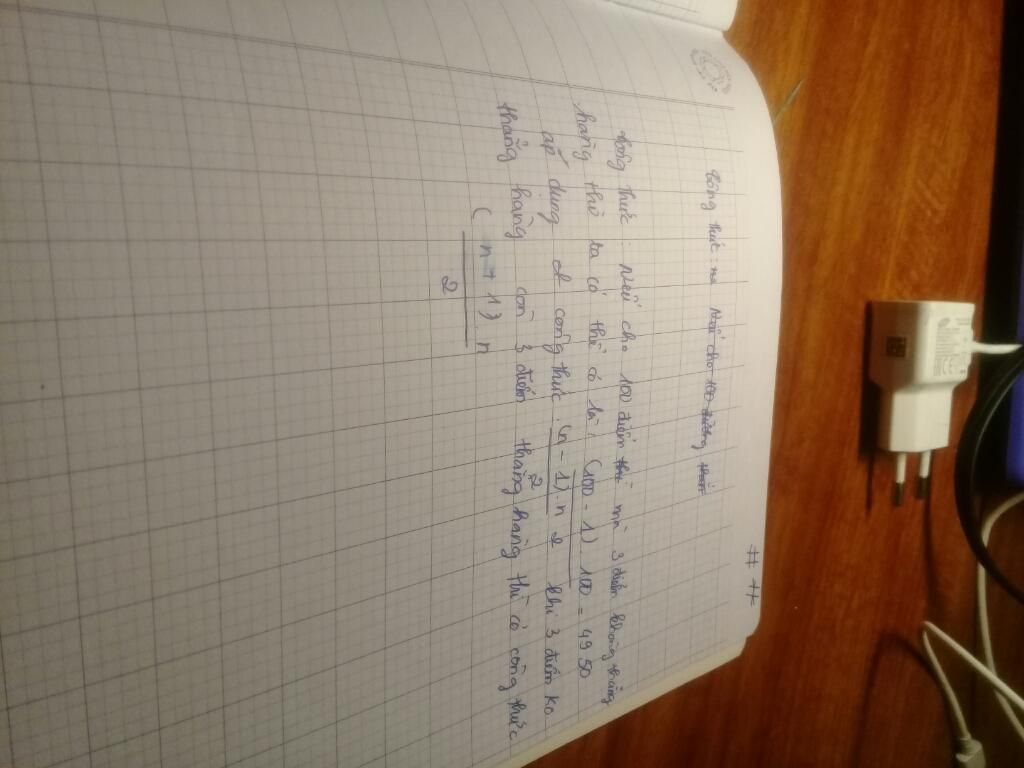 Công thức: Nếu cho 100 đường thì
Công thức: nếu cho 100 điểm thì mà 3 điểm không thẳng
hàng thì ta có thể có là: (100 - 1). 100 = 4950
2
áp dụng công thức (n - 1). n khi 3 điểm ko
2
thẳng hàng còn 3 điểm thẳng hàng thì có công thức
(n + 1). n
2